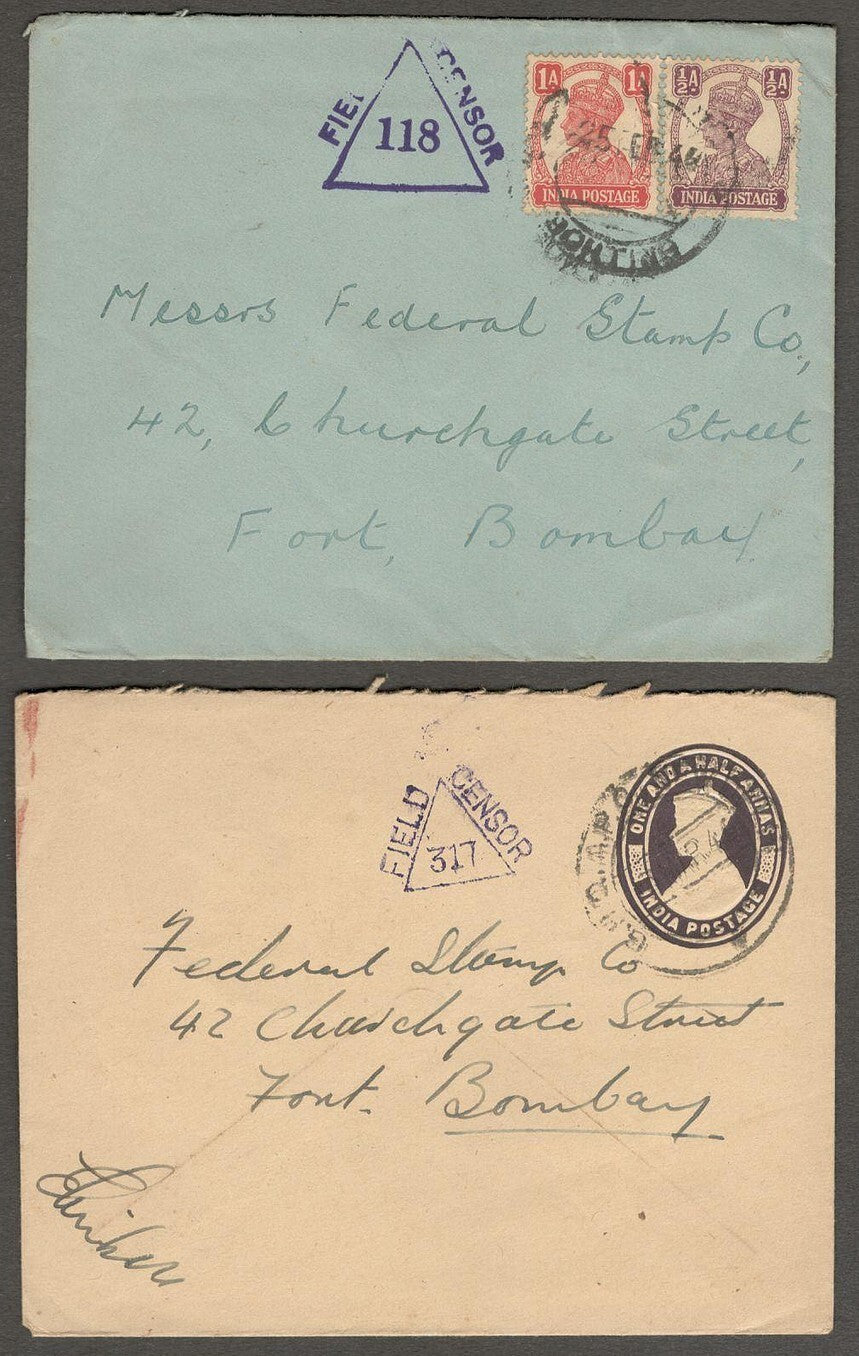 FIEL CENSOR
118
1A 1A
INDIA POSTAGE
½A ½A
INDIA POSTAGE
Messrs Federal Stamp Co,
42, Churchgate Street,
Fort, Bombay
FIELD CENSOR
317
ONE AND A HALF ANNAS
INDIA POSTAGE
Federal Stamp Co
42 Churchgate Street
Fort. Bombay